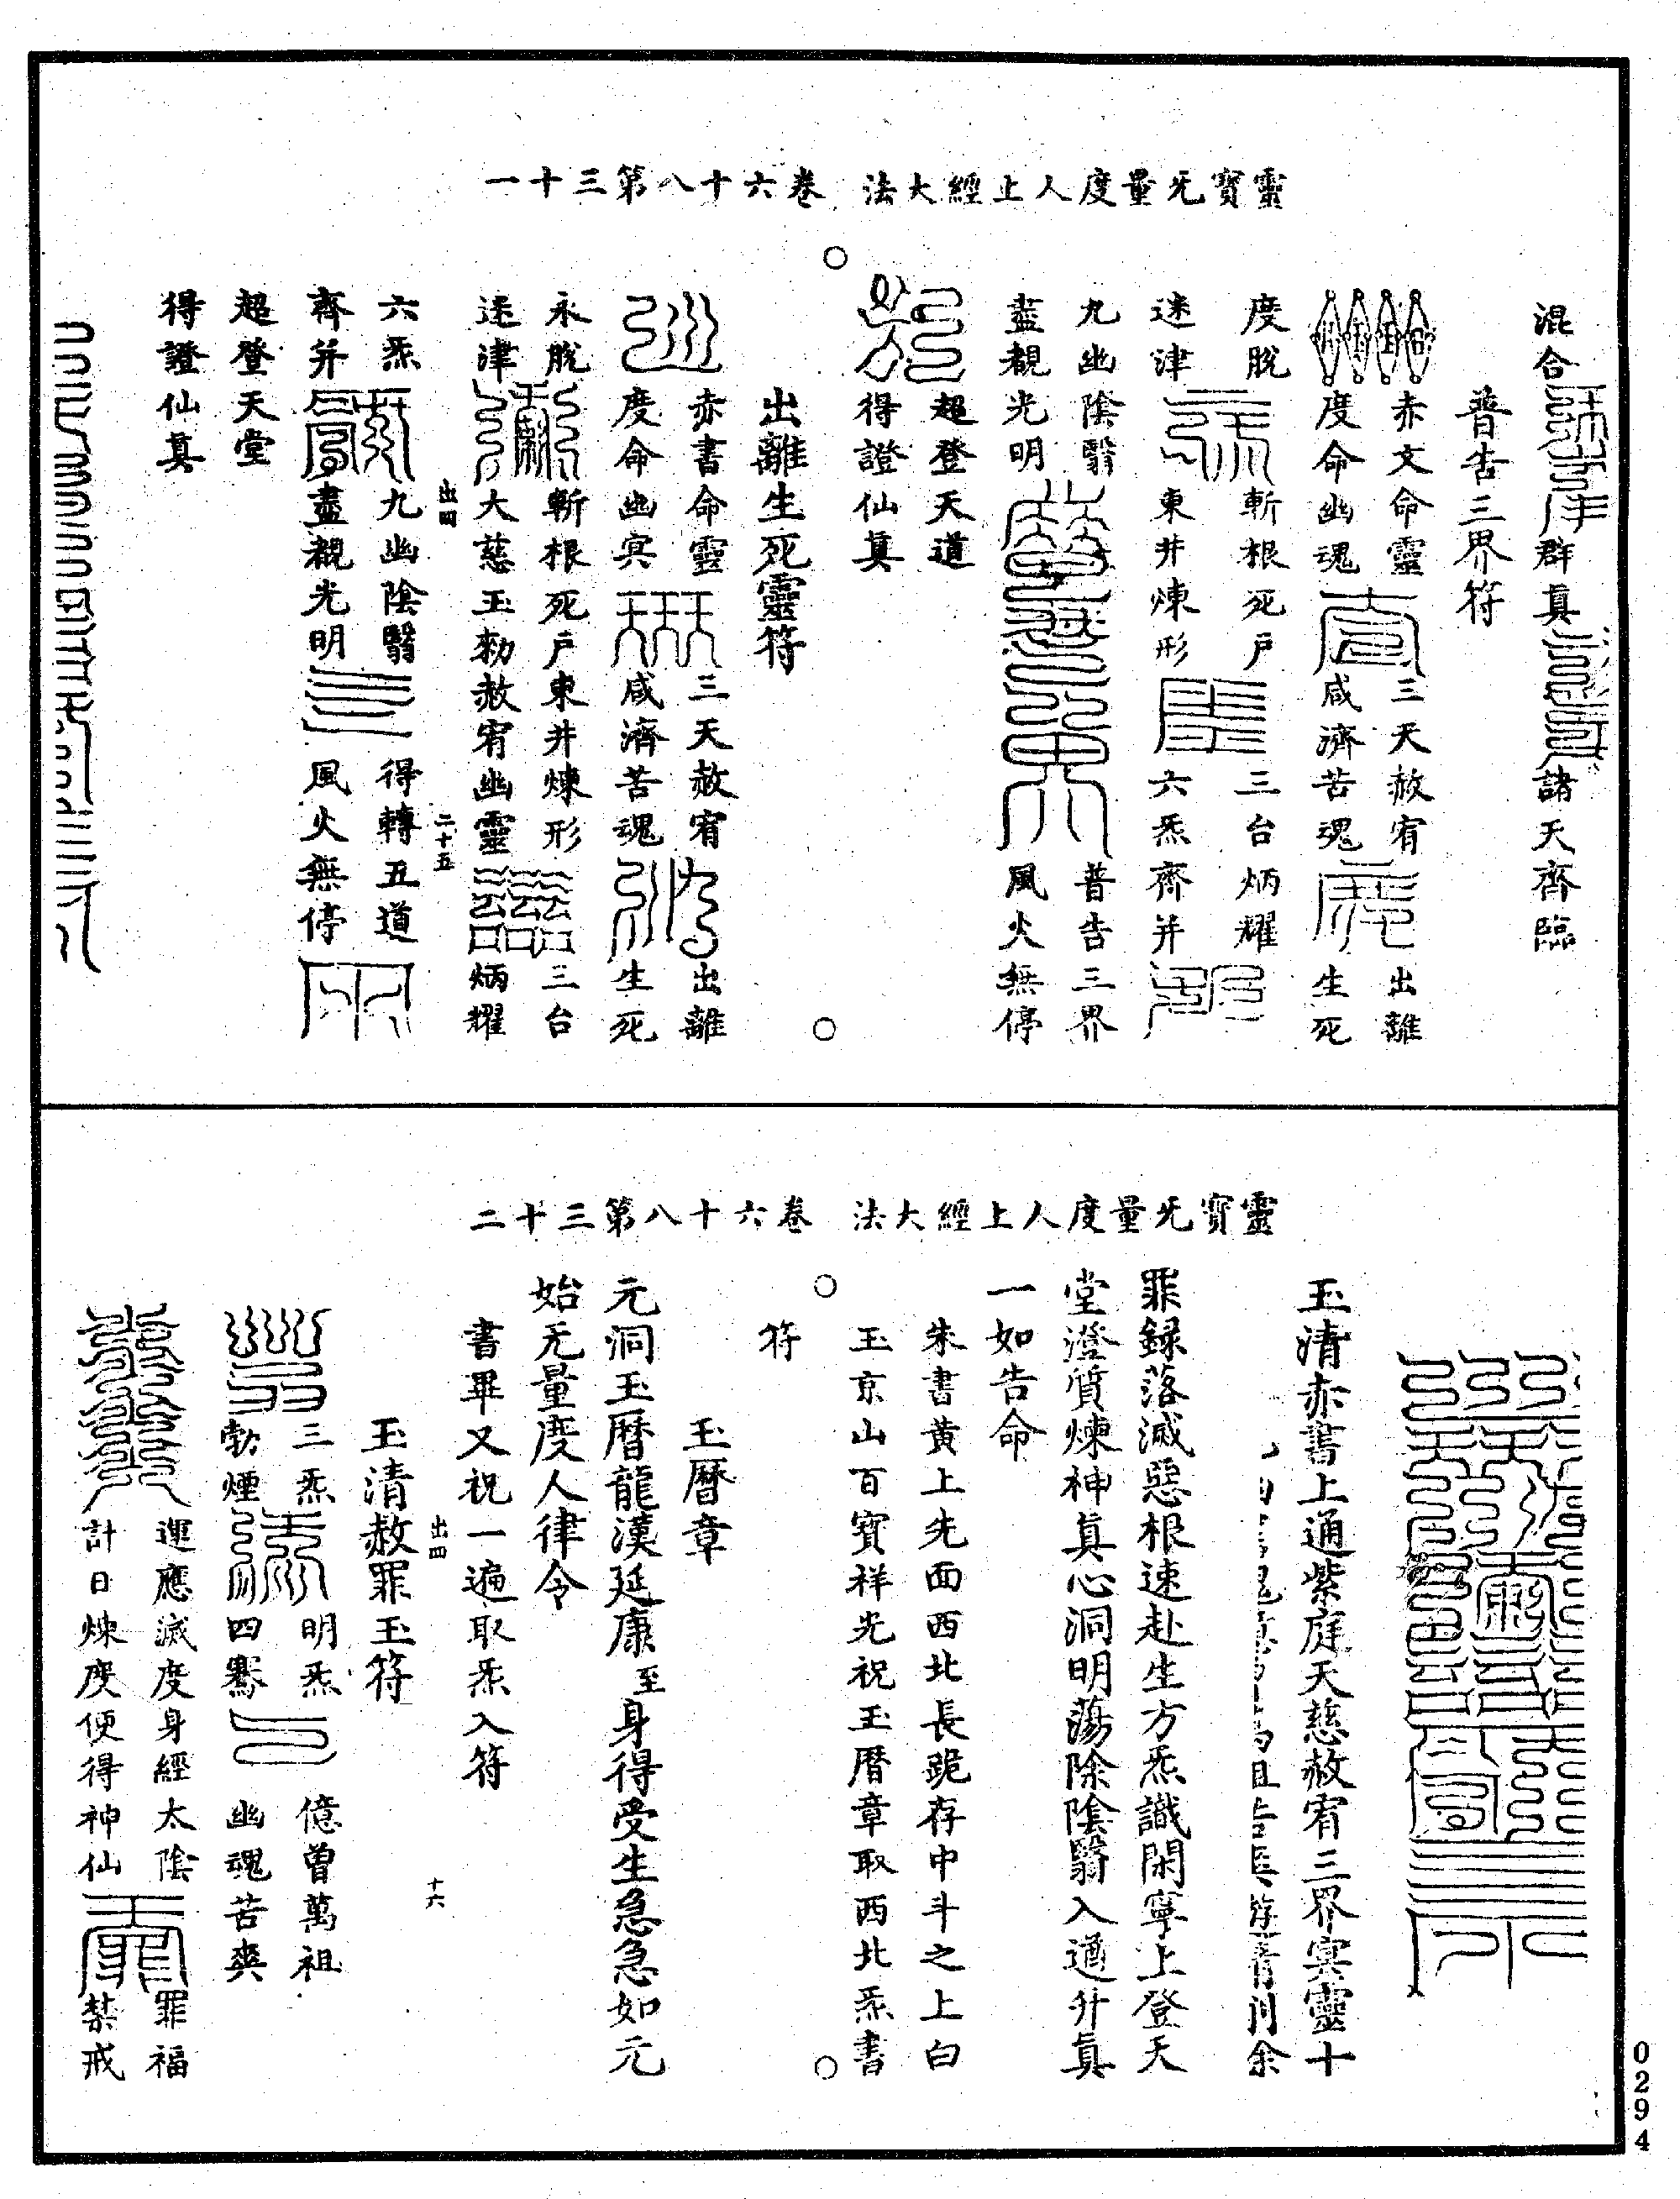 靈寶无量度人上經大法　卷六十八第三十一
混合
群真
諸天齊臨
普告三界符
赤文命靈
度命幽魂
三天赦宥
咸濟苦魂
出離
生死
度脫
迷津
斬根死戶
東井煉形
三台炳耀
六炁齊并
九幽陰翳
盡覩光明
普告三界
風火無停
超登天道
得證仙真
出離生死靈符
赤書命靈
度命幽冥
三天赦宥
咸濟苦魂
出離
生死
永脫
迷津
斬根死戶東井煉形
大慈玉勑赦宥幽靈
三台
炳耀
出四
二十五
六炁
齊并
九幽陰翳
盡覩光明
得轉五道
風火無停
超登天堂
得證仙真
靈寶无量度人上經大法　卷六十八第三十二
玉清赤書上通紫庭天慈赦宥三界冥靈十
罪録落滅惡根速赴生方炁識閑寧上登天
堂澄質煉神真心洞明蕩除陰翳入遒升真
一如告命
朱書黃上先面西北長跪存中斗之上白
玉京山百寶祥光祝玉曆章取西北炁書
符
玉曆章
元洞玉曆龍漢延康至身得受生急急如元
始无量度人律令
書畢又祝一遍取炁入符
出四
十六
玉清赦罪玉符
三炁
勃煙
明炁
四騫
億曾萬祖
幽魂苦爽
運應滅度身經太陰
計日煉度便得神仙
罪福
禁戒
0294